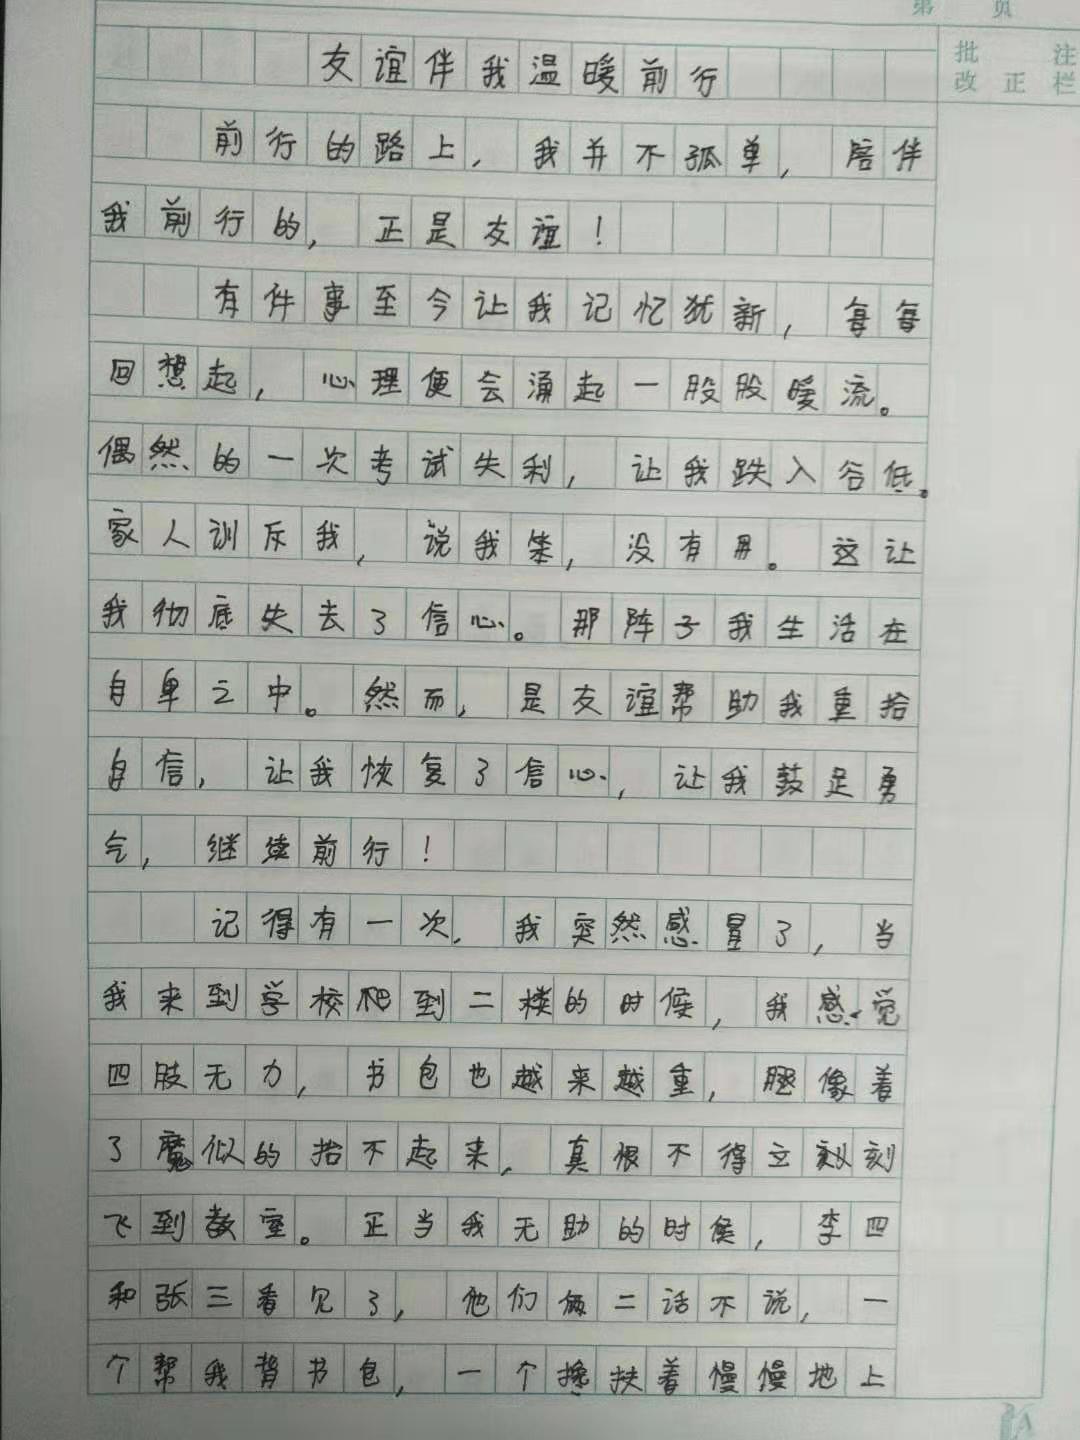 第 页
批 注
改 正 栏
友谊伴我温暖前行
前行的路上，我并不孤单，陪伴
我前行的，正是友谊！
有件事至今让我记忆犹新，每每
回想起，心理便会涌起一股股暖流。
偶然的一次考试失利，让我跌入谷低。
家人训斥我，说我笨，没有用。这让
我彻底失去了信心。那阵子我生活在
自卑之中。然而，是友谊帮助我重拾
自信，让我恢复了信心，让我鼓足勇
气，继续前行！
记得有一次，我突然感冒了，当
我来到学校爬到二楼的时候，我感觉
四肢无力，书包也越来越重，腿像着
了魔似的抬不起来，真恨不得立刻刻
飞到教室。正当我无助的时候，李四
和张三看见了，他们俩二话不说，一
个帮我背书包，一个搀扶着慢慢地上